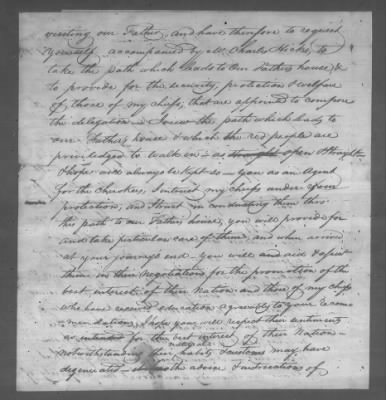 visiting our Father, and have therefore to request
yourself, accompanied by Mr. Charles Hicks, to
take the path which leads to our Fathers house, &
to provide for the security, protection & welfare
of those of my chiefs, that are appointed to compose
the delegation – I view the path which leads to
our Fathers house & which the red people are
priviledged to walk in – as straight open & straight –
& hope will always be kept so – you as an Agent
for the Cherokees, I intrust my chiefs under your
protection, and trust in conducting them thro
the path to our Fathers house, you will provide for
and take particular care of them, and when arrived
at your journeys end – you will and aid & assist
them in their Negotiations for the promotion of the
best interests of their Nation and those of my chiefs
who have received education agreeably to your recom-
mendation, I hope you will respect their sentiments
as intended for the best interest of their Nation –
Notwithstanding their native habits & customs may have
degenerated – the advice & instructions of